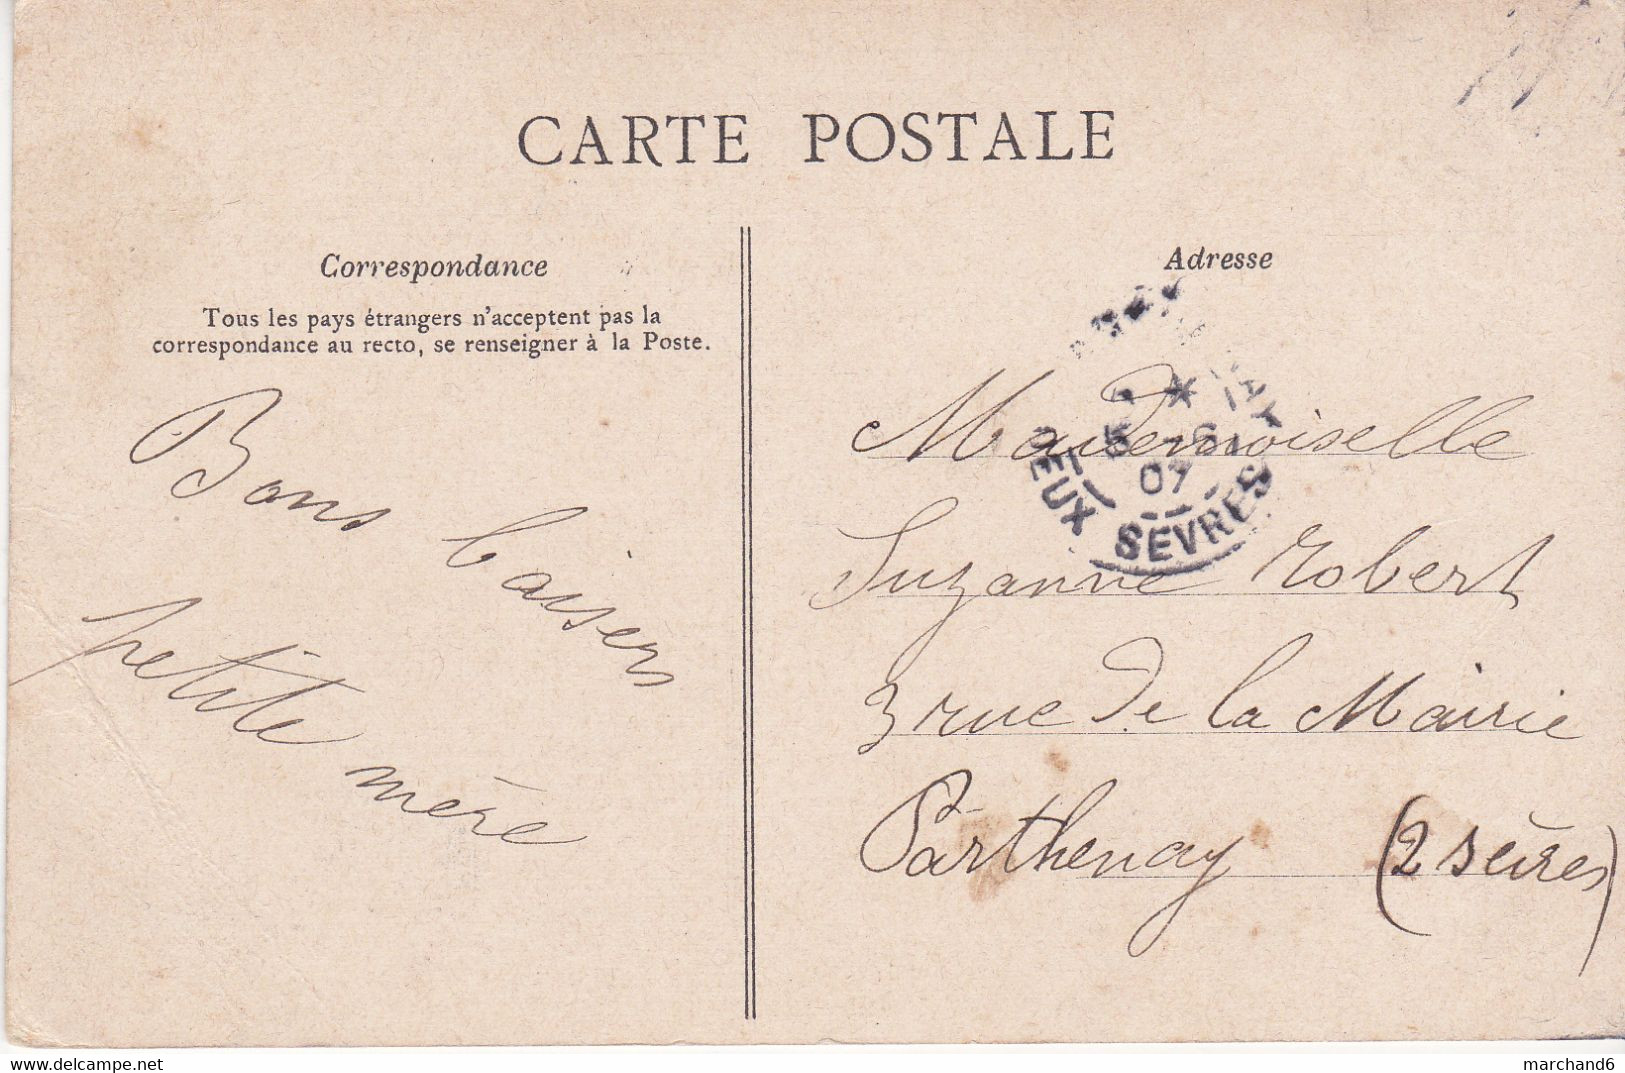 CARTE POSTALE
Correspondance
Tous les pays étrangers n'acceptent pas la
correspondance au recto, se renseigner à la Poste.
Bons baisers
petite mère
Adresse
Mademoiselle
Suzanne Robert
3 rue de la Mairie
Parthenay (2 sèvres)
07
DEUX SÈVRES
www.delcampe.net
marchand6